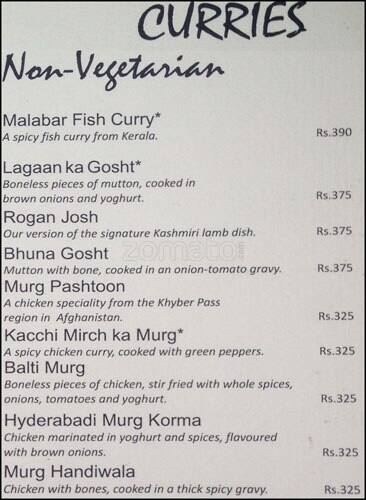 CURRIES
Non-Vegetarian
Malabar Fish Curry*
A spicy fish curry from Kerala. Rs.390
Lagaan ka Gosht*
Boneless pieces of mutton, cooked in
brown onions and yoghurt. Rs.375
Rogan Josh
Our version of the signature Kashmiri lamb dish. Rs.375
zomato
Bhuna Gosht
Mutton with bone, cooked in an onion-tomato gravy. Rs.375
Murg Pashtoon
A chicken speciality from the Khyber Pass
region in Afghanistan. Rs.325
Kacchi Mirch ka Murg*
A spicy chicken curry, cooked with green peppers. Rs.325
Balti Murg
Boneless pieces of chicken, stir fried with whole spices,
onions, tomatoes and yoghurt. Rs.325
Hyderabadi Murg Korma
Chicken marinated in yoghurt and spices, flavoured
with brown onions. Rs.325
Murg Handiwala
Chicken with bones, cooked in a thick spicy gravy. Rs.325